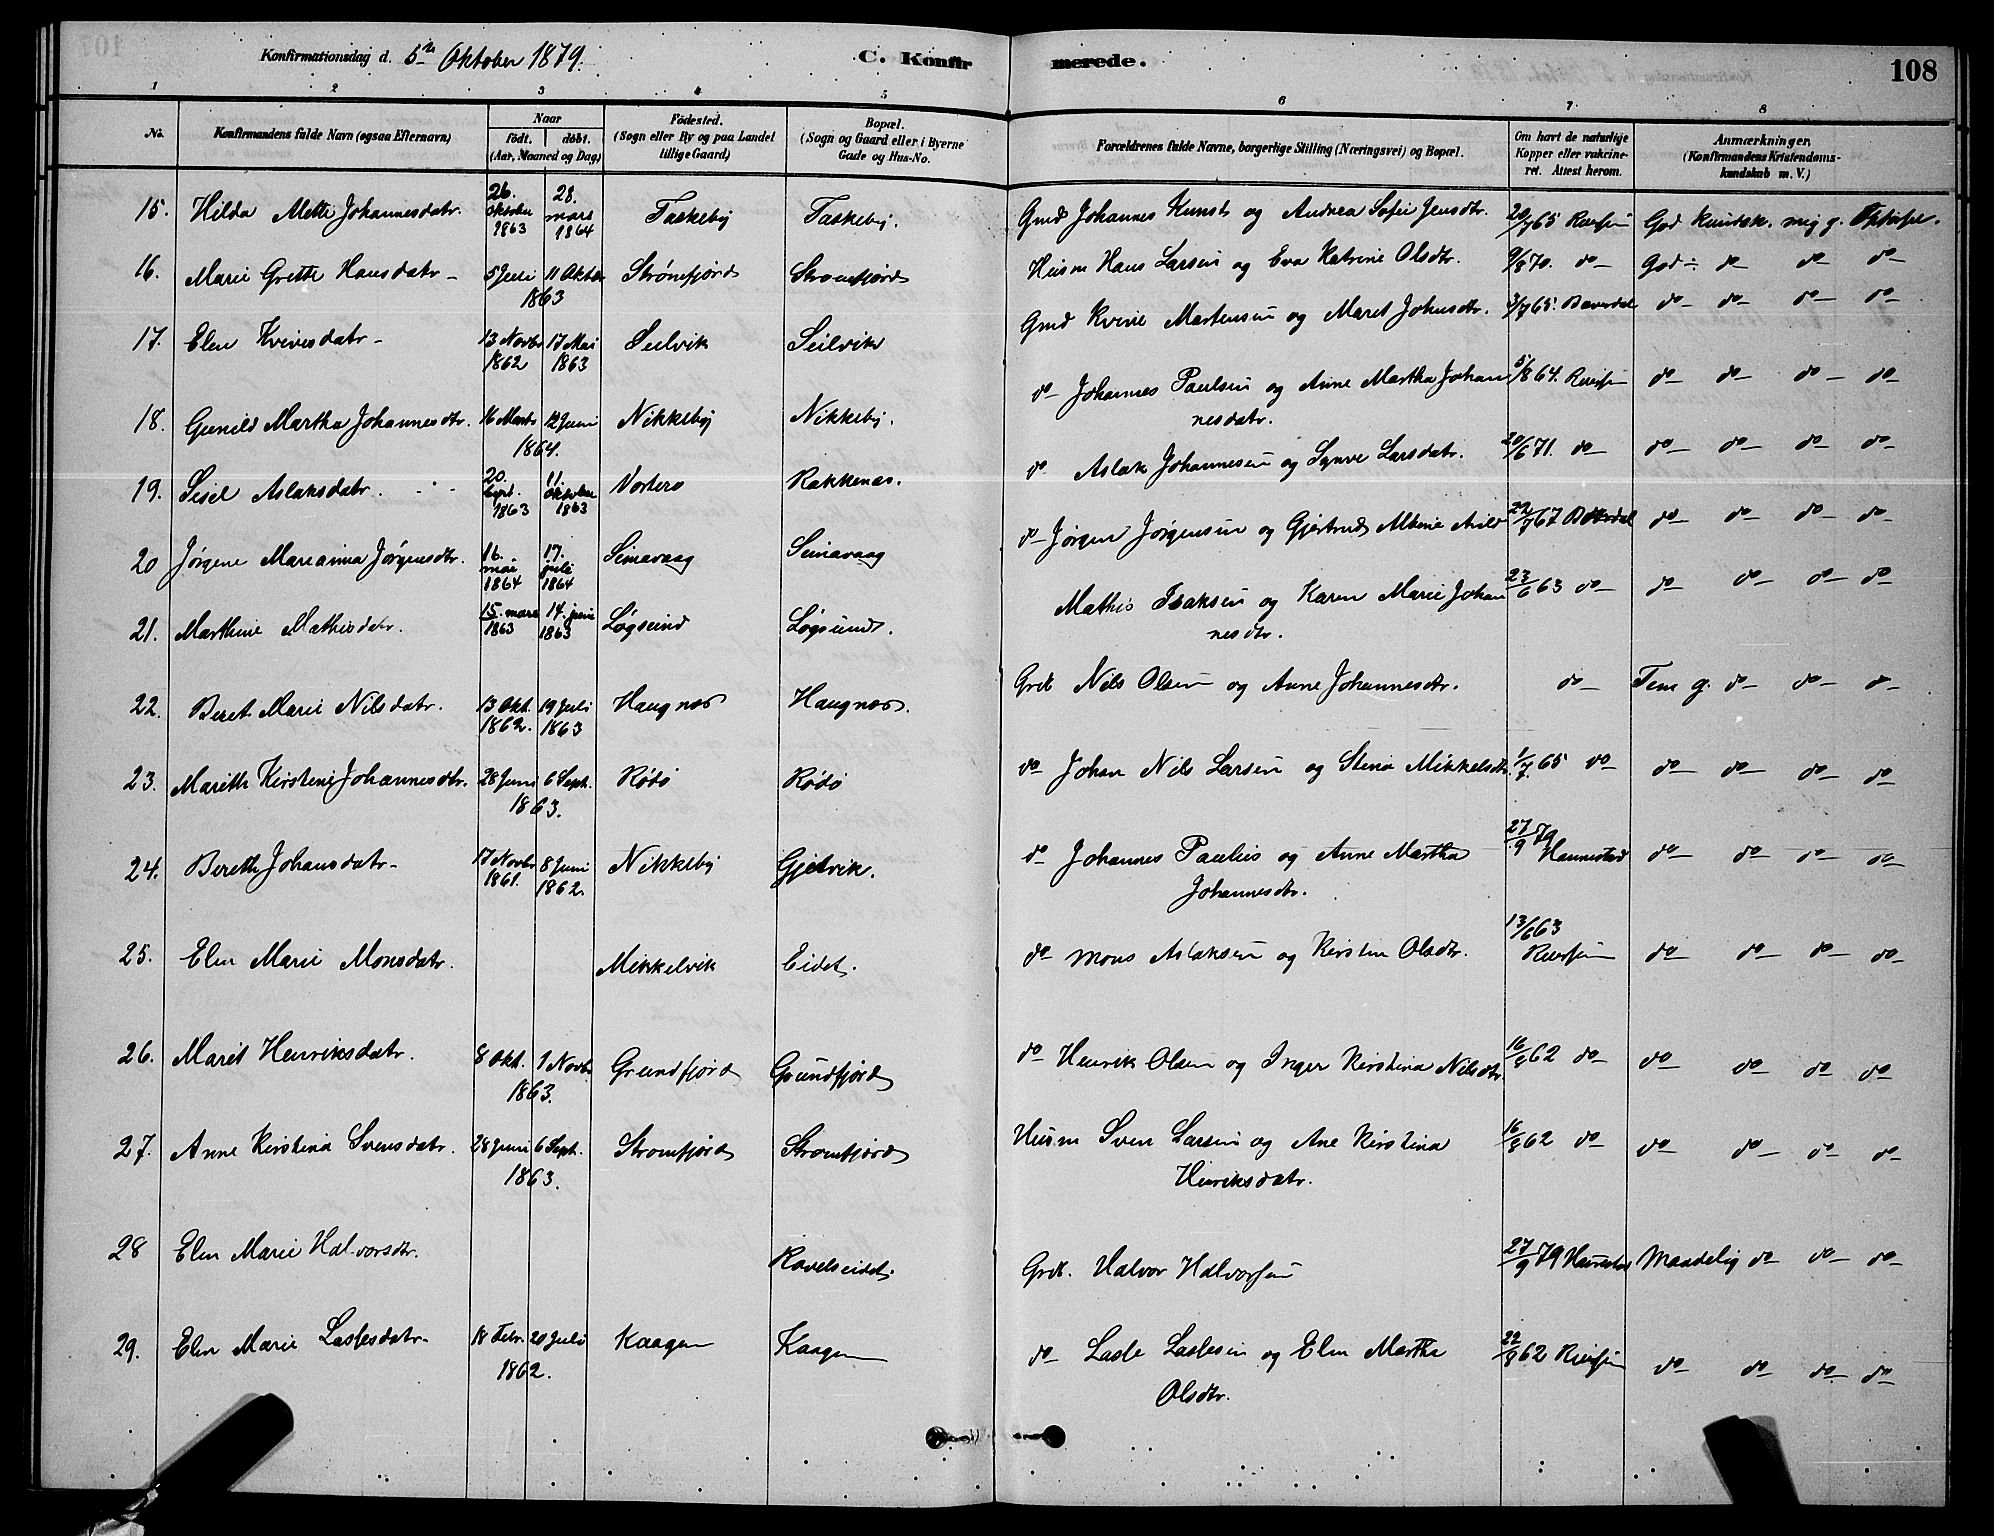 Konfirmationsdag d. 5te Oktober 1879.
C. Konfirmerede.
108
1 2 3 4 5 6 7 8
No.
Konfirmandens fulde Navn (ogsaa Efternavn)
Naar
født. døbt.
(Aar, Maaned og Dag)
Fødested.
(Sogn eller By og paa Landet
tillige Gaard)
Bopæl.
(Sogn og Gaard eller i Byerne
Gade og Hus-No.
Forældrenes fulde Navne, borgerlige Stilling (Næringsvei) og Bopæl.
Om havt de naturlige
Kopper eller vakcine-
ret. Attest herom.
Anmærkninger.
(Konfirmandens Kristendoms-
kundskab m. V.)
15. Hilda Mette Johannesdatr. 26. Oktober 1863 28. mars 1864 Taskeby Taskeby. Gmd Johannes Kunst og Andrea Sofie Jensdtr. 20/7 65 God kundsk.
16. Marie Grethe Hansdatr 5 Juli 11 Oktbr 1863 Strømfjord Stromfjord Husm Hans Larsen og Eva Katrine Olsdtr. 9/8 70. do God do do do
17. Elen Kvivesdatr 13 Novbr 1862 17 Mai 1863 Seilvik Seilvik Gmd Kvive Mortensen og Maret Johnsdtr. 3/7 65. do do do do
18. Gunild Martha Johannesdtr. 16 Marts 12 Juni 1864. Nikkeby Nikkeby. do Johannes Paulsen og Anne Martha Johan 5/8 64. do do do do
nesdatr.
19. Sisel Aslaksdatr. 20. Sept. 1863 11. Oktober 1863 Vortero Rakkenæs. do Aslak Johannesen og Synve Larsdatr. 20/6 71. do do do do do
20 Jørgine Marianna Jørgensdtr. 16. mai 1864 17. juli 1864 Seinavaag Seinavaag do Jørgen Jørgensen og Gjertrud 22/7 67 do do do do
21. Marthine Mathisdatr. 15. mars 1863 14. juni 1863 Løgsund Løgsund. Mathis Isaksen og Karen Marie Johan 23/6 63 do do do do do
nesdtr.
22. Beret Marie Nilsdatr. 13 Okt. 1862. 19 Juli 1863 Haugnæs Haugnæs. Nils Olsen og Anne Johannesdtr. do Tem g. do do do
23. Marith Kirstine Johannesdtr. 28 Juni 6 Sept. 1863. Rødø Rødø do Johan Nils Larsen og Stina Mikkelsdtr. 1/7 65 do do do do do
24. Bereth Johansdatr 17 Novbr 1861. 8 Juni 1862. Nikkeby Gjetvik. do Johannes Paulus og Anne Martha 27/9 79 do do do do
Johannesdtr.
25. Elen Marie Monsdatr. Mikkelvik Eidet. do Mons Aslaksen og Kirsten Olsdtr. 13/6 63 do do do do
26. Marit Henriksdatr. 8 Okt. 1 Novbr. 1863. Grundfjord Grundfjord do Henrik Olsen og Inger Kirstina Nilsdtr. 16/8 62 do do do do do
27. Anne Kirstina Svensdatr. 28 Juni 6 Sept. 1863. Stromfjord Stromfjord Husm Sven Larsen og Ane Kirstina 16/8 62 do do do do do
Henriksdatr.
28 Elen Marie Halvorsdtr. Ravelseidet. Halvor Halvorsen 27/9 79 Maadelig do do do
29. Elen Marie Laslesdatr 18 Febr. 20 Juli 1862. Kaagen Kaagen do Lasle Laslesen og Elen Martha 22/8 62 do do do do
Olsdtr.